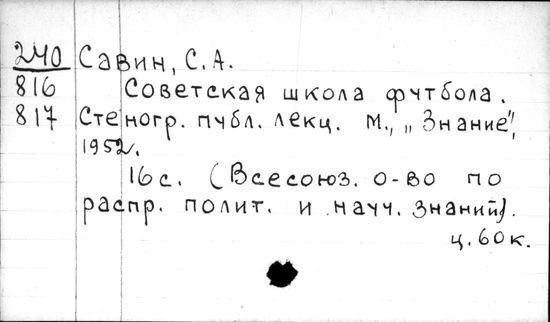 240 Савин, С.А.
816 Советская школа футбола.
817 Стеногр. публ. лекц. М., „Знание",
1952.
16с. (Всесоюз. о-во по
распр. полит. и науч. знаний).
ц. 60к.